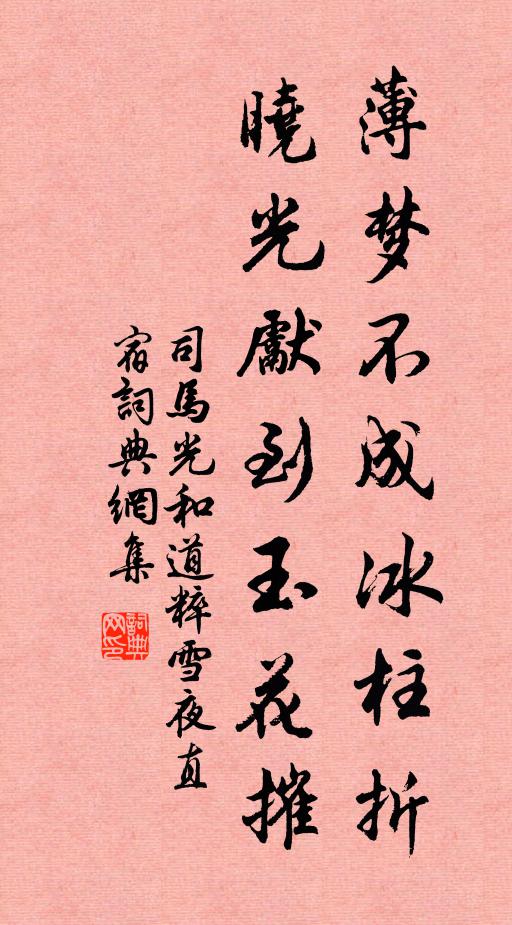 薄梦不成冰柱折
曉光獻到玉花摧
司馬光和道粹雪夜直
宿詞典網集
詞典
网印